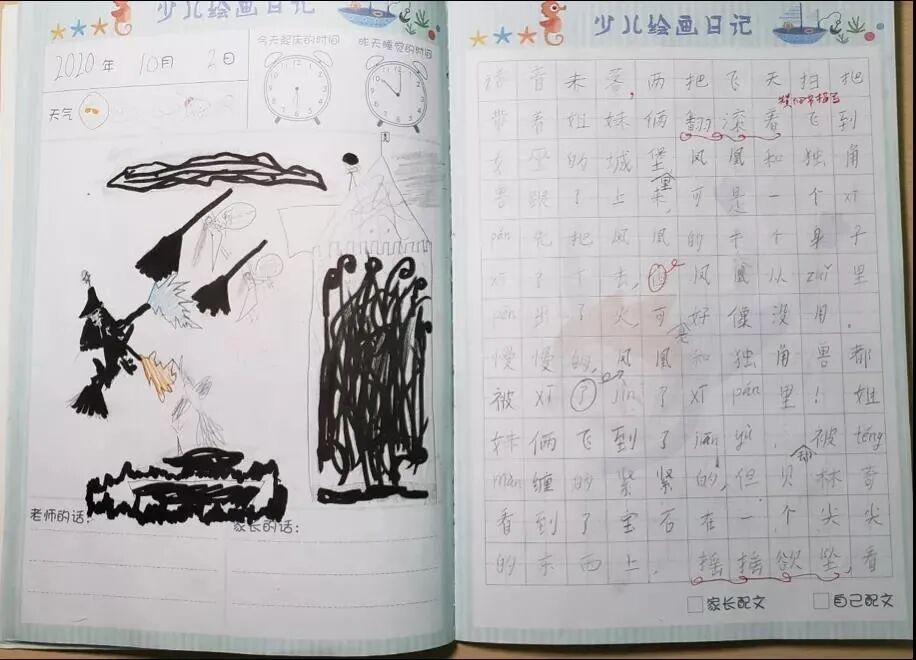 少儿绘画日记
今天起床的时间 昨天睡觉的时间
2020年 10月 2日
天气
老师的话: 家长的话:
少儿绘画日记
话音未落,两把飞天扫把
带着姐妹俩翻滚着飞到
女巫的城堡里凤凰和独角
兽跟了上来,可是一个xī
pán先把凤凰的半个身子
xī了下去,凤凰从zuǐ里
pēn出了火可是好像没用.
慢慢的,凤凰和独角兽都
被xī了jìn了xī pán里!姐
妹俩飞到了jiān yù,却被téng
màn缠的紧紧的,但贝林奇
看到了宝石在一个尖尖
的东西上,摇摇欲坠,看
家长配文 自己配文